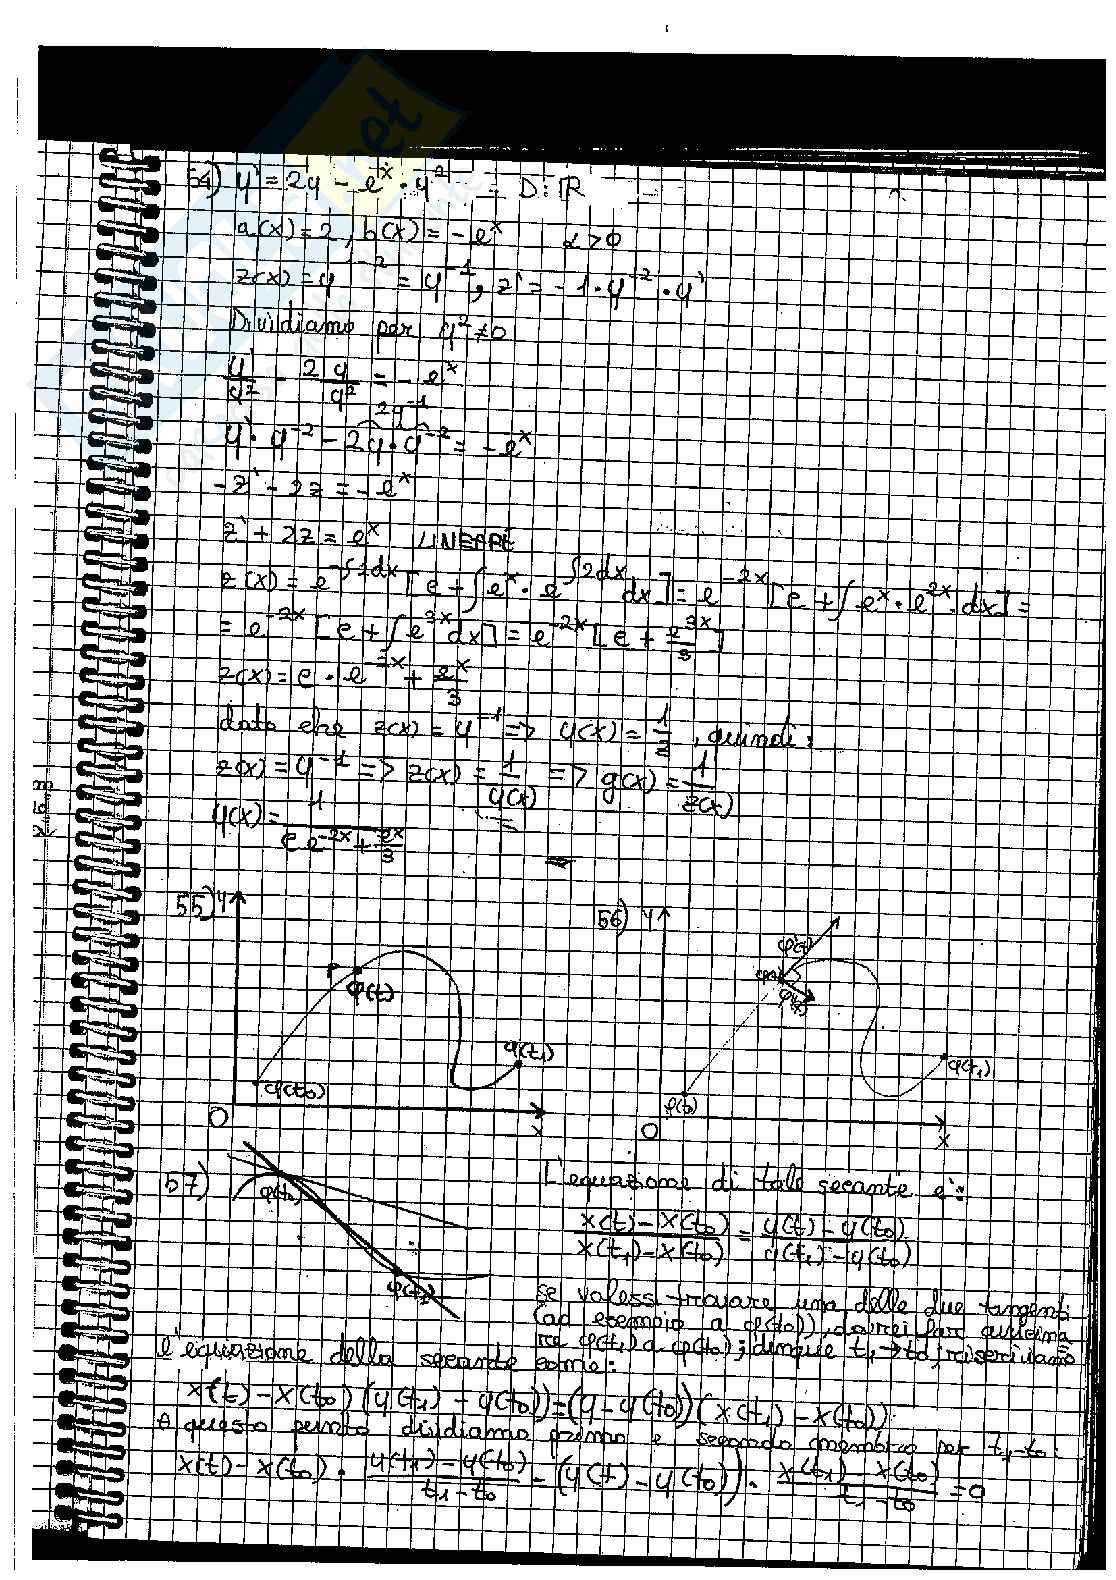 54) y' = 2y - e^x · y^2 D: ℝ
a(x) = 2, b(x) = -e^x α > 0
z(x) = y^{1-2} = y^{-1}, z' = -1 · y^{-2} · y'
Dividiamo per y^2 ≠ 0
y'/y^2 - 2y/y^2 = -e^x
2y^{-1}
y' · y^{-2} - 2y · y^{-2} = -e^x
-z' - 2z = -e^x
z' + 2z = e^x LINEARE
z(x) = e^{-∫2dx} [c + ∫e^x · e^{∫2dx} dx] = e^{-2x} [c + ∫e^x · e^{2x} · dx] =
= e^{-2x} [c + ∫e^{3x} dx] = e^{-2x} [c + e^{3x}/3]
z(x) = c · e^{-2x} + e^x/3
dato che z(x) = y^{-1} => y(x) = 1/z, quindi:
z(x) = y^{-1} => z(x) = 1/y(x) => y(x) = 1/z(x)
y(x) = 1/(c e^{-2x} + e^x/3)
55) y
P
φ(t)
φ(t1)
φ(t0)
O
x
56) y
φ'(t)
φ(t1)
φ(t0)
O
x
57)
φ(t0)
φ(t1)
L'equazione di tale secante è:
(x(t) - x(t0))/(x(t1) - x(t0)) = (y(t) - y(t0))/(y(t1) - y(t0))
se volessi trovare una delle due tangenti
(ad esempio a φ(t0)), dovrei far avvicina
re φ(t1) a φ(t0); dunque t1 → t0, riscriviamo
l'equazione della secante come:
x(t) - x(t0) (y(t1) - y(t0)) = (y - y(t0)) (x(t1) - x(t0))
A questo punto dividiamo primo e secondo membro per t1 - t0:
x(t) - x(t0) · (y(t1) - y(t0))/(t1 - t0) = (y(t) - y(t0)) · (x(t1) - x(t0))/(t1 - t0) = 0